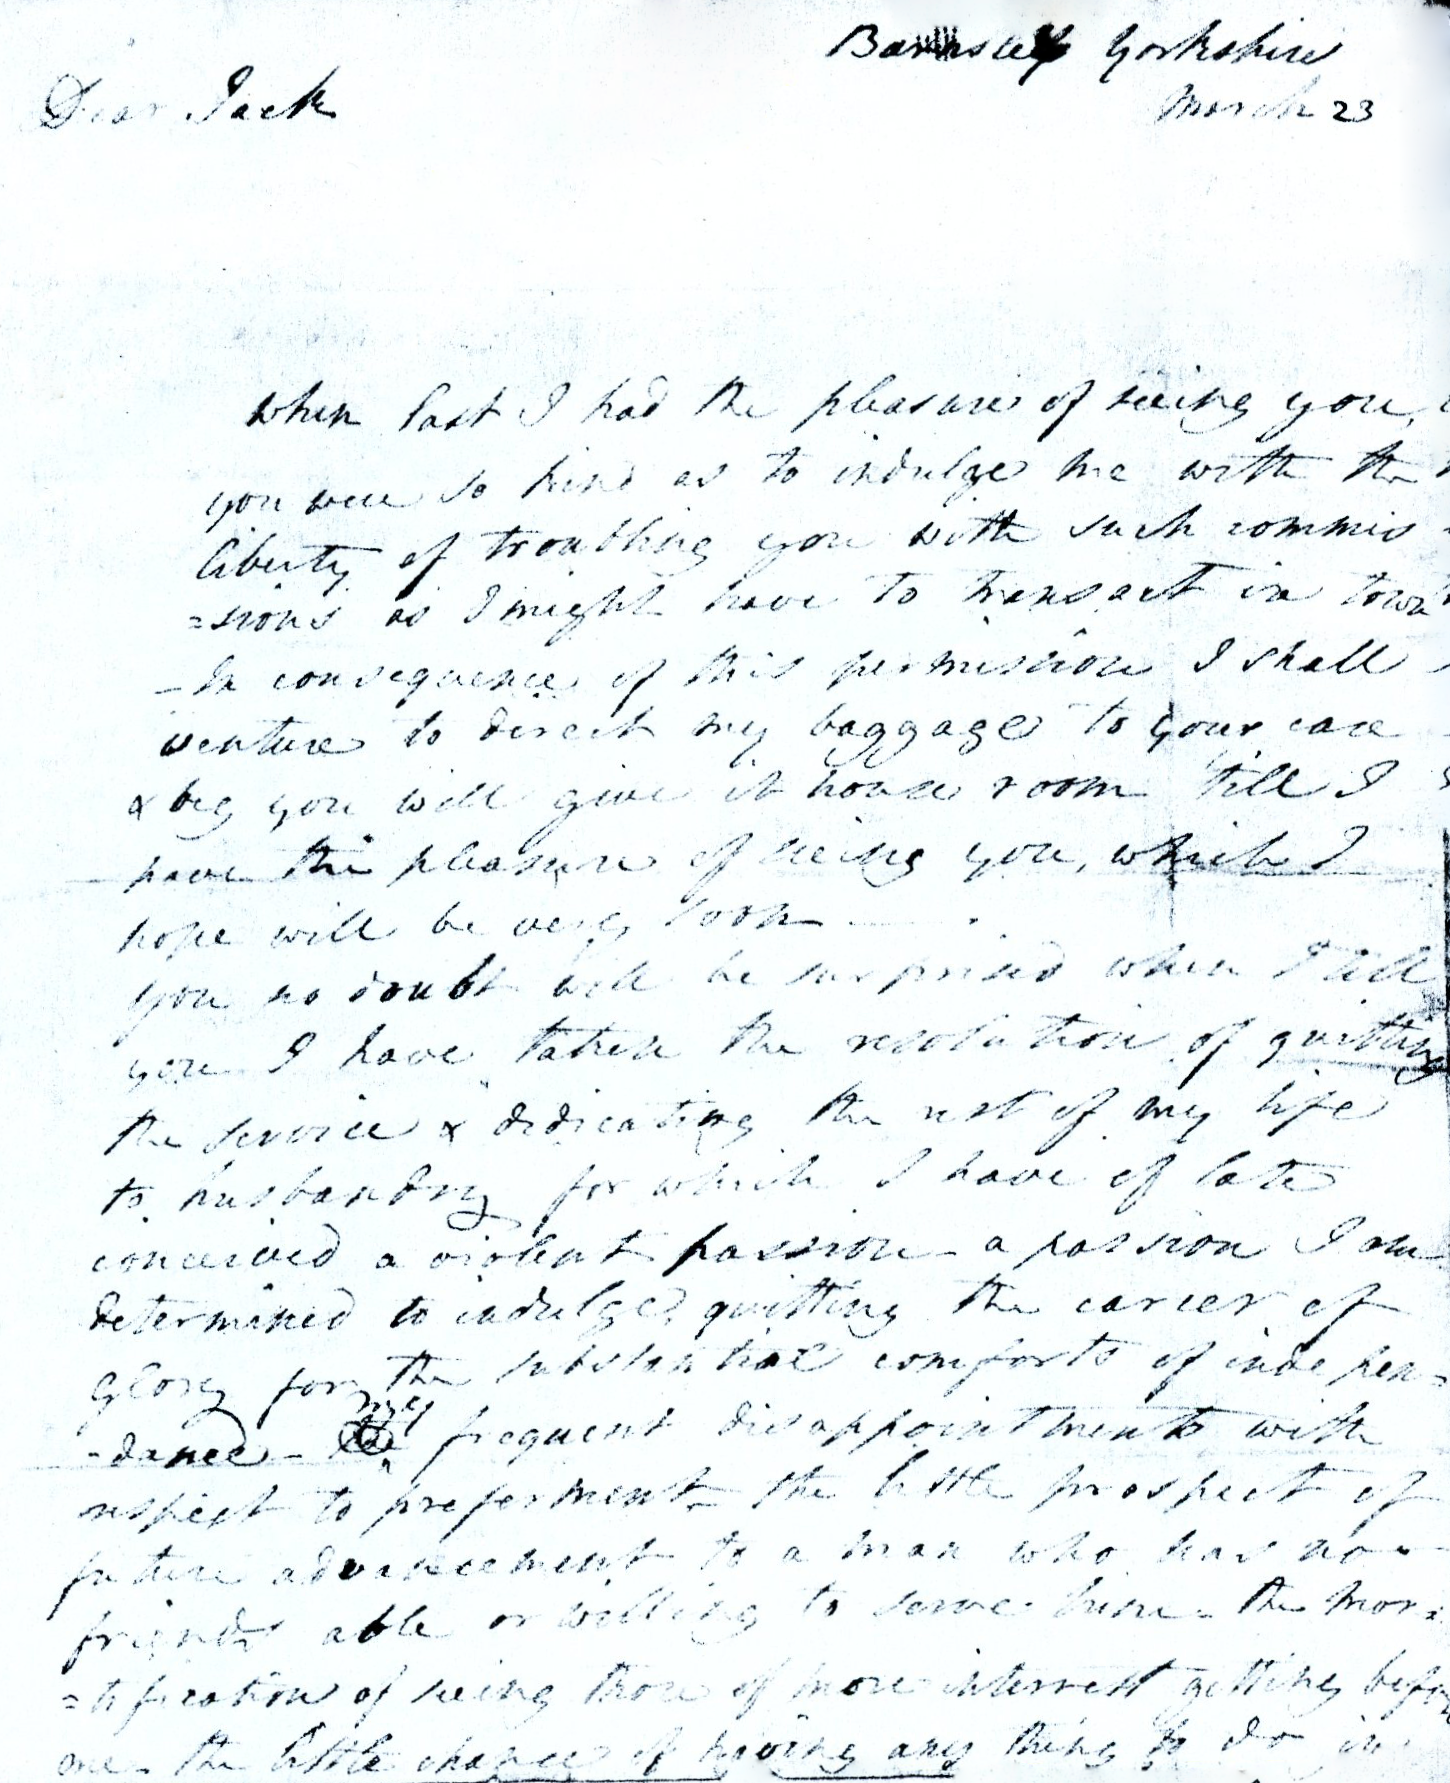 Barnsley Yorkshire
March 23
Dear Jack
When last I had the pleasure of seeing you,
you were so kind as to indulge me with the
liberty of troubling you with such commis-
=sions as I might have to transact in town
- In consequence of this permission I shall
venture to direct my baggage to your care
& beg you will give it house room 'till I
have the pleasure of seeing you, which I
hope will be very soon - .
You no doubt will be surprised when I tell
you I have taken the resolution of quitting
the service & dedicating the rest of my life
to husbandry for which I have of late
conceived a violent passion - a passion I am
determined to indulge, quitting the career of
glory for the substantial comforts of indepen=
-dance - my frequent disappointments with
respect to preferment - the little prospect of
future advancement to a man who has no
friends able or willing to serve him - the mor=
=tification of seeing those of more interest getting before
me - the little chance of having any thing to do in